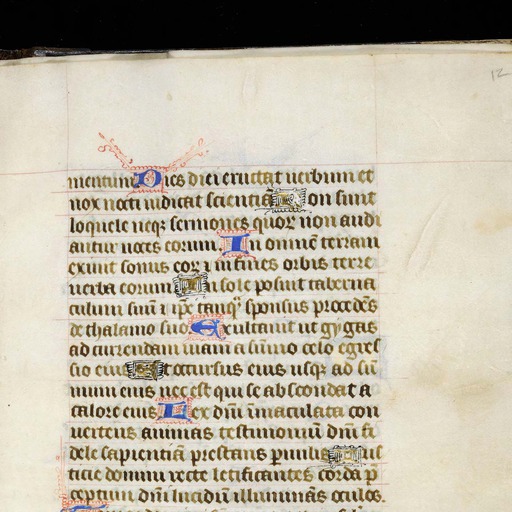 12
mentum Dies diei eructat uerbum et
nox nocti indicat scientiā Non sunt
loquele neqꝫ sermones quoꝝ non audi
antur uoces eorum. In omnem terram
exiuit sonus eoꝝ ⁊ in fines orbis terre
uerba eorum In sole posuit taberna
culum suū ⁊ ip̄e tanqͣ sponsus procedēs
de thalamo suo Exultauit ut gygas
ad currendam uiam a sūmo celo egres
sio eius Et occursus eius usqꝫ ad sū
mum eius nec est qui se abscondat a
calore eius Lex dn̄i īmaculata con
uertens animas testimoniū dn̄i fi
dele sapientiā prestans paruulis Ius
ticie domini recte letificantes corda p̄
ceptum dn̄i lucidū illuminās oculos.